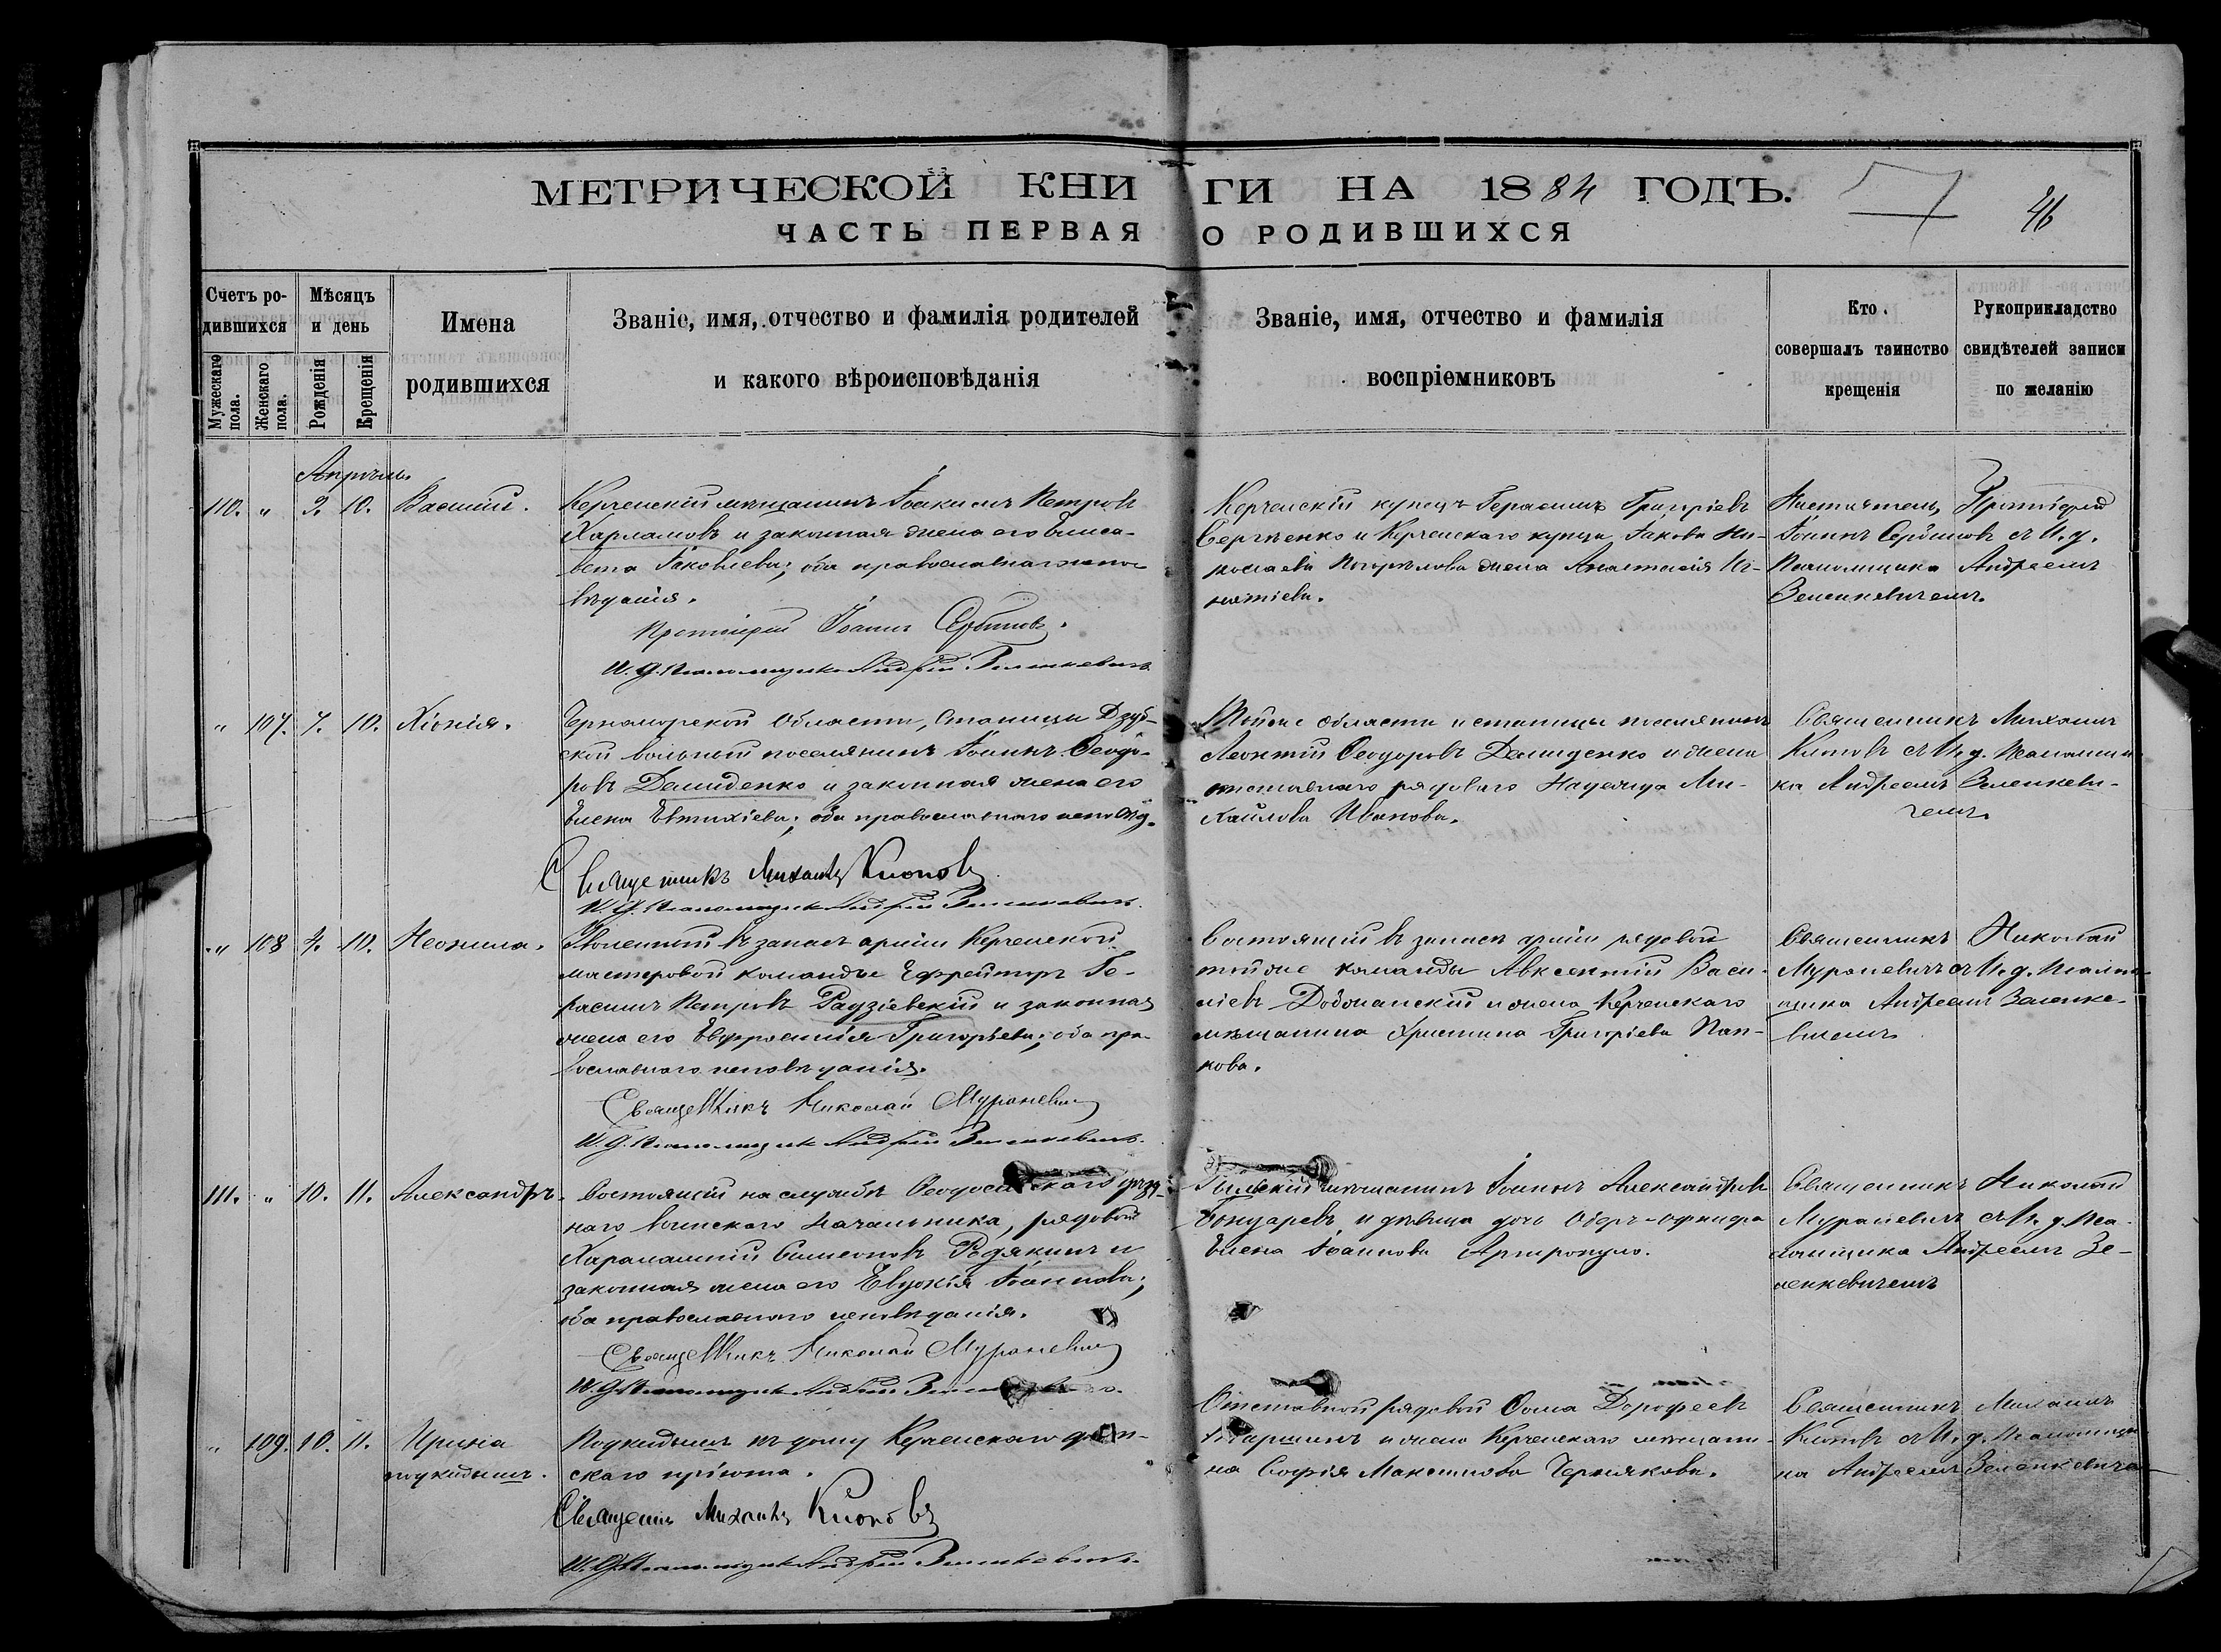 МЕТРИЧЕСКОЙ КНИГИ НА 1884 ГОДЪ.
46
ЧАСТЬ ПЕРВАЯ О РОДИВШИХСЯ
Счетъ ро-
дившихся
Мужескаго пола.
Женскаго пола.
Мѣсяцъ
и день
Рожденія
Крещенія
Имена
родившихся
Званіе, имя, отчество и фамилія родителей
и какого вѣроисповѣданія
Званіе, имя, отчество и фамилія
воспріемниковъ
Кто
совершалъ таинство
крещенія
Рукоприкладство
свидѣтелей записи
по желанію
Апрѣль.
110. " 10. Василій.
Керченскій мѣщанинъ Іоакимъ Петровъ
Харламовъ и законная жена его Елиса-
вета Іаковлева; оба православнаго испо-
вѣданія.
Протоіерей Іоаннъ Сербиновъ.
И. д. Псаломщика Андрей Зеленкевичъ
Керченскій купецъ Герасимъ Григоріевъ
Сергѣенко и Керченскаго купца Іакова Ни-
колаева Погорѣлова жена Анастасія Иг-
натіева.
Настоятель Протоіерей
Іоаннъ Сербиновъ съ И. д.
Псаломщика Андреемъ
Зеленкевичемъ.
" 107. 7. 10. Хіонія.
Черноморской Области, Станицы Дзуб-
ской вольный поселянинъ Іоаннъ Ѳеодо-
ровъ Демиденко и законная жена его
Елена Евтихіева; оба православнаго исповѣд.
Священникъ Михаилъ Кіоновъ
И. д. Псаломщика Андрей Зеленкевичъ.
Тойже области и станицы поселянинъ
Леонтій Ѳеодоровъ Демиденко и жена
отставнаго рядоваго Надежда Ми-
хайлова Иванова.
Священникъ Михаилъ
Кіоновъ съ И. д. Псаломщи-
ка Андреемъ Зеленкеви-
чемъ.
" 108 10. Неонила.
Уволенный въ запасъ арміи Керченской
мастеровой команды Ефрейторъ Ге-
расимъ Петровъ Радзіевскій и законная
жена его Евфросинія Григорьева; оба пра-
вославнаго исповѣданія.
Священникъ Николай Мураневичъ
И. д. Псаломщика Андрей Зеленкевичъ.
Состоящій въ запасѣ арміи рядовой
тойже команды Авксентій Васи-
ліевъ Добжанскій и жена Керченскаго
мѣщанина Христина Григоріева Пан-
кова.
Священникъ Николай
Мураневичъ съ И. д. Псалом-
щика Андреемъ Зеленке-
вичемъ
111. " 10. 11. Александръ.
Состоящій на службѣ Ѳеодосійскаго уѣзд-
наго воинскаго Начальника, рядовой
Харалампій Симеоновъ Родякинъ и
законная жена его Евдокія Іоаннова;
оба православнаго исповѣданія.
Священникъ Николай Мураневичъ
И. д. Псаломщика Андрей
мѣщанинъ Іоаннъ Александровъ
Бондаревъ, и дѣвица дочь Оберъ-офицера
Елена Іоаннова Аргиропуло.
Священникъ Николай
Мураневичъ съ И. д. Пса-
ломщика Андреемъ Зе-
ленкевичемъ
" 109. 10. 11. Ирина
подкидышъ.
Подкидышъ къ дому Керченскаго дѣт-
скаго пріюта.
Священникъ Михаилъ Кіоновъ
И. д. Псаломщика Андрей Зеленкевичъ.
Отставной рядовой Ѳома Дороѳеевъ
и жена Керченскаго мѣщани-
на Софія Максимова Чернякова.
Священникъ Михаилъ
Кіоновъ съ И. д. Псаломщи-
ка Андреемъ Зеленкевичемъ